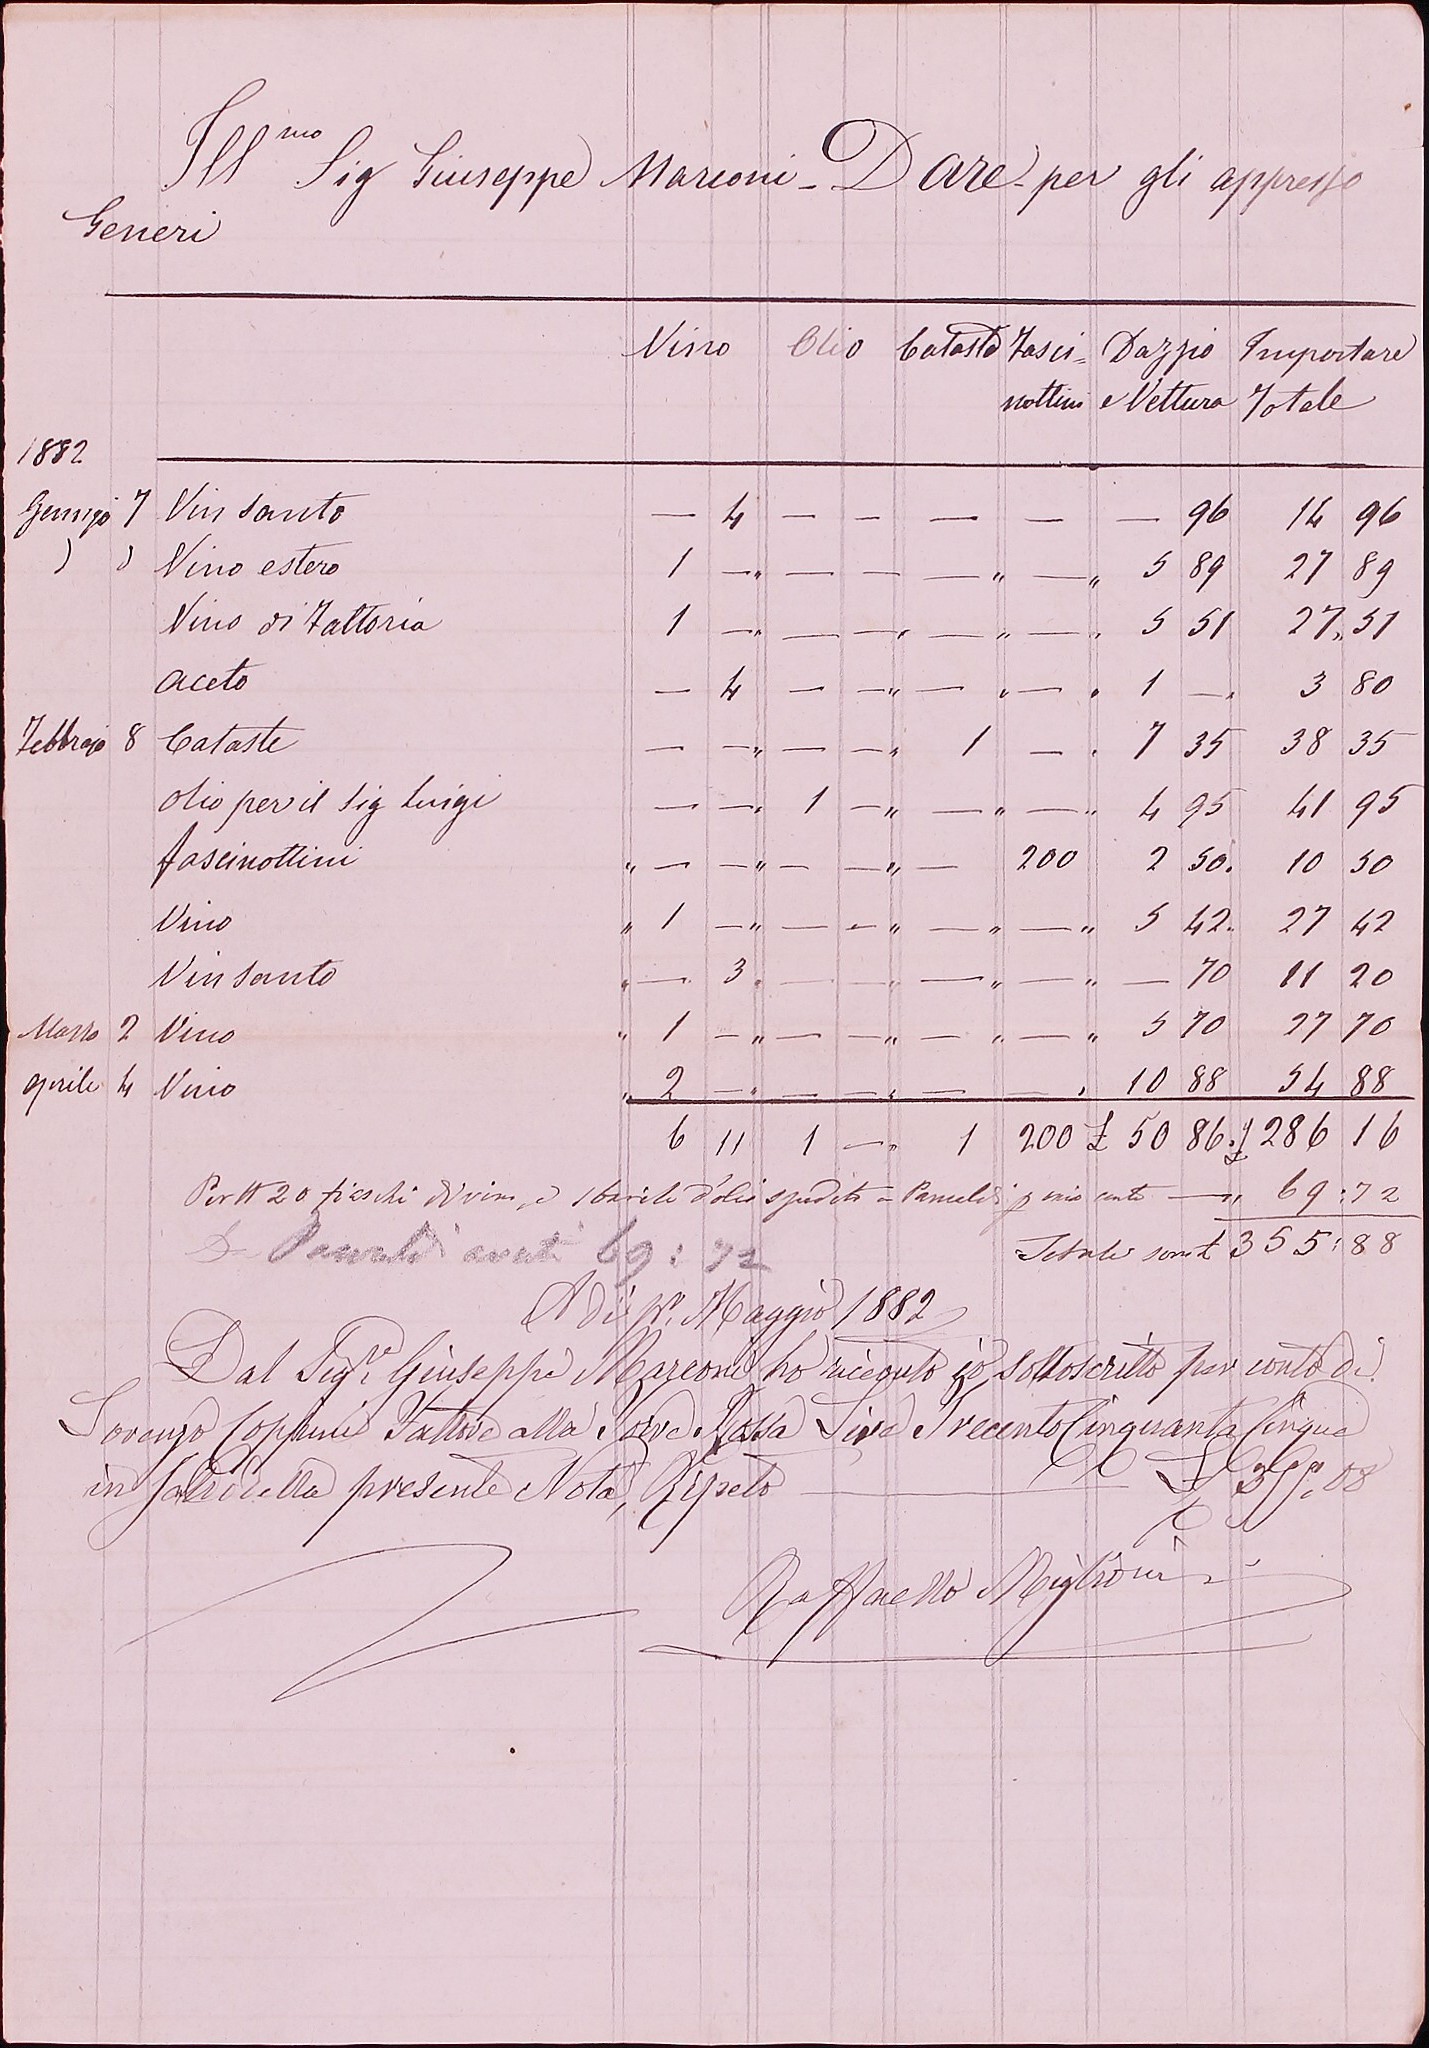 Ill.mo Sig Giuseppe Marconi - Dare - per gli appresso
Generi
Vino Olio Cataste Fasci= Dazzio Importare
nottini e Vettura Totale
1882
Gennajo 7 Vin santo — 4 — — — — — 96 14 96
" " Vino estero 1 —" — — —" —" 5 89 27 89
Vino di Fattoria 1 —" — —" —" —" 5 51 27 51
Aceto — 4 — —" — " — " 1 —" 3 80
Febbrajo 8 Cataste — —" — —" 1 — " 7 35 38 35
Olio per il Sig Luigi — —" 1 —" —" —" 4 95 41 95
fascinottini " — —" — —" — 200 2 50 10 50
Vino " 1 —" — —" —" —" 5 42 27 42
Vin santo " — 3 " — —" —" —" — 70 11 20
Marzo 2 Vino " 1 —" — —" —" —" 5 70 27 70
Aprile 4 Vino " 2 —" — —" — — " 10 88 54 88
6 11 1 —" 1 200 £ 50 86 £ 286 16
Per N 20 fiaschi di vino, e 1 barile d'olio spedito a p mio conto —" 69:72
Totale som £ 355:88
69:72
A dì pr. Maggio 1882
Dal Sig.re Giuseppe Marconi ho ricevuto io sottoscritto per conto di
Lorenzo Coppini Fattore alla Rossa Lire Trecento Cinquanta Cinque
in saldo della presente Nota, Ripeto — £ 355.88
Raffaello Miglioni